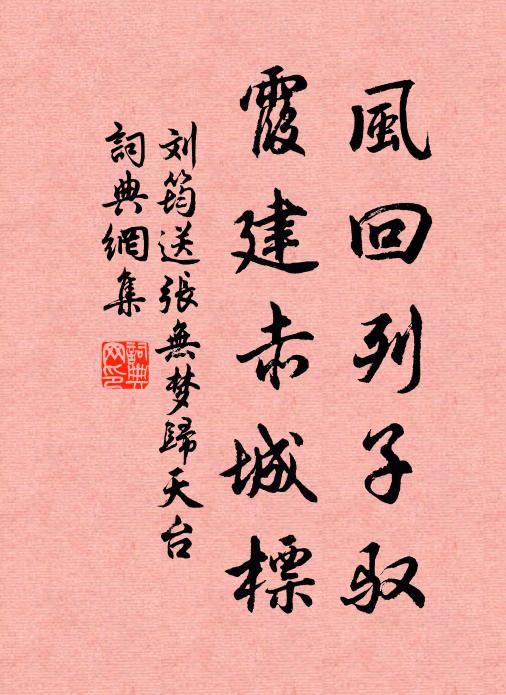 風回列子驭
霞建赤城標
刘筠送張無梦歸天台
詞典網集
詞典网印